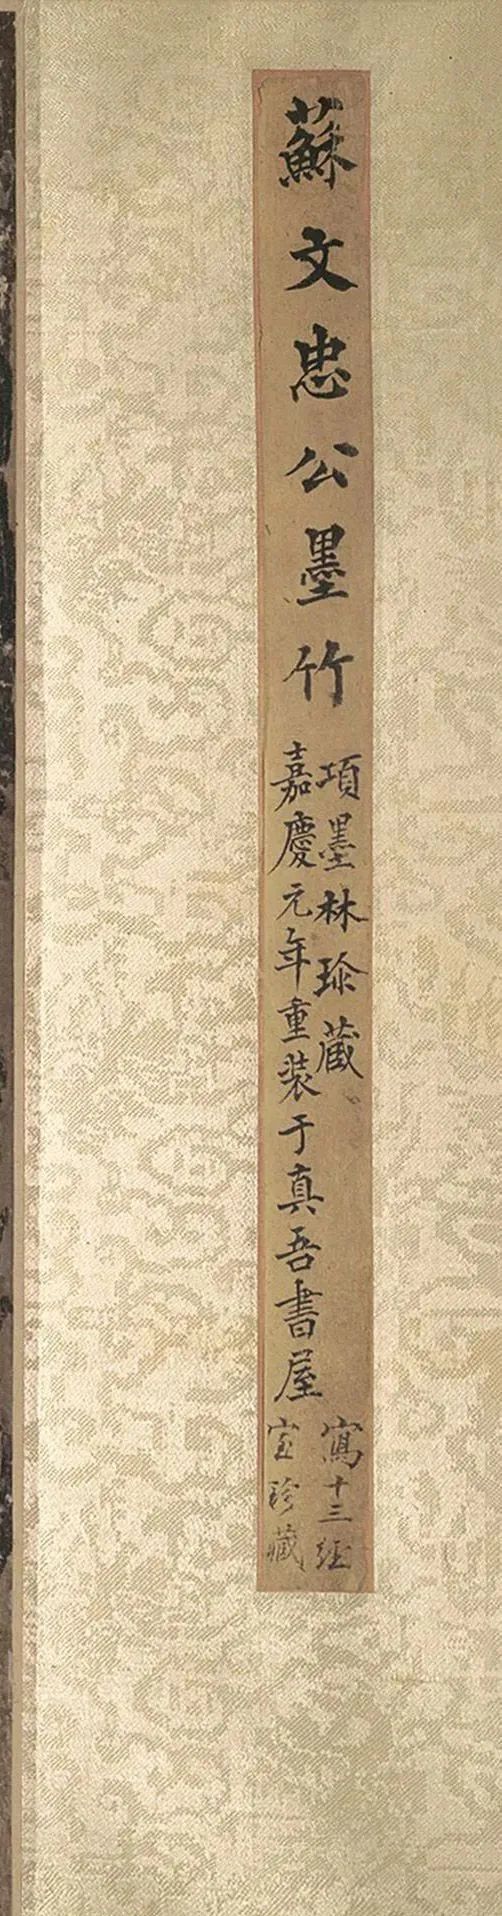 蘇文忠公墨竹
項墨林珍藏
嘉慶元年重装于真吾書屋
寫十三經
室珍藏